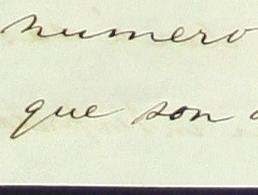 numero
que son